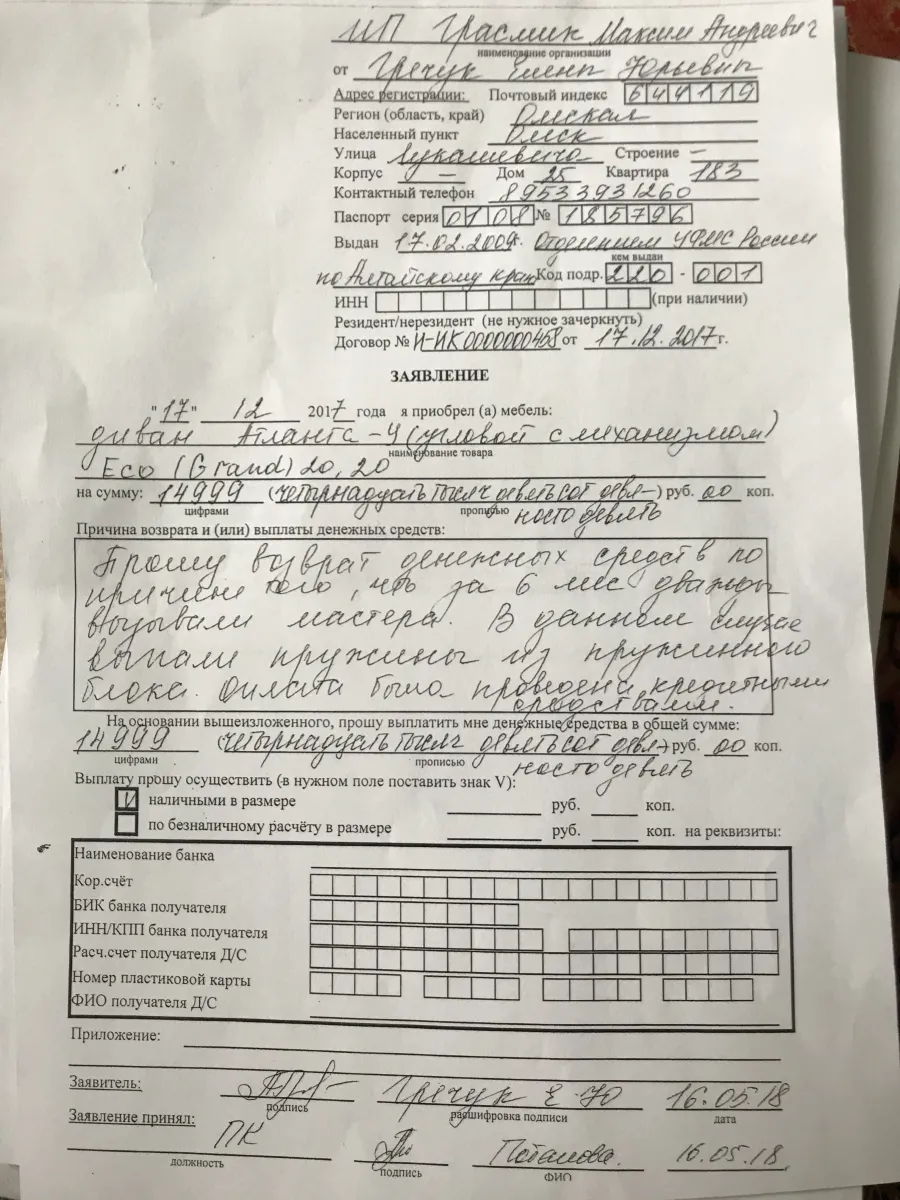 ИП Грасмик Максим Андреевич
наименование организации
от Гречук Елены Юрьевны
Адрес регистрации: Почтовый индекс 644119
Регион (область, край) Омская
Населенный пункт Омск
Улица Лукашевича Строение –
Корпус – Дом 25 Квартира 183
Контактный телефон 89533931260
Паспорт серия 0108 № 185796
Выдан 17.02.2009г. Отделением УФМС России
кем выдан
по Алтайскому краю Код подр. 220 - 001
ИНН (при наличии)
Резидент/нерезидент (не нужное зачеркнуть)
Договор № И-ИК0000000458 от 17.12.2017г.
ЗАЯВЛЕНИЕ
"17" 12 2017 года я приобрел (а) мебель:
диван Атланта-4 (угловой с механизмом)
наименование товара
Eco (Grand) 20, 20
на сумму: 14999 (четырнадцать тысяч девятьсот девя-) руб. 00 коп.
цифрами прописью носто девять
Причина возврата и (или) выплаты денежных средств:
Прошу возврат денежных средств по
причине того, что за 6 мес дважды
вызывали мастера. В данном случае
выпали пружины из пружинного
блока. Оплата была проведена кредитными
средствами.
На основании вышеизложенного, прошу выплатить мне денежные средства в общей сумме:
14999 (четырнадцать тысяч девятьсот девя-) руб. 00 коп.
цифрами прописью носто девять
Выплату прошу осуществить (в нужном поле поставить знак V):
V наличными в размере руб. коп.
по безналичному расчёту в размере руб. коп. на реквизиты:
Наименование банка
Кор.счёт
БИК банка получателя
ИНН/КПП банка получателя
Расч.счет получателя Д/С
Номер пластиковой карты
ФИО получателя Д/С
Приложение:
Заявитель: Гречук Е.Ю 16.05.18
подпись расшифровка подписи дата
Заявление принял: ПК Потапова. 16.05.18.
должность подпись ФИО